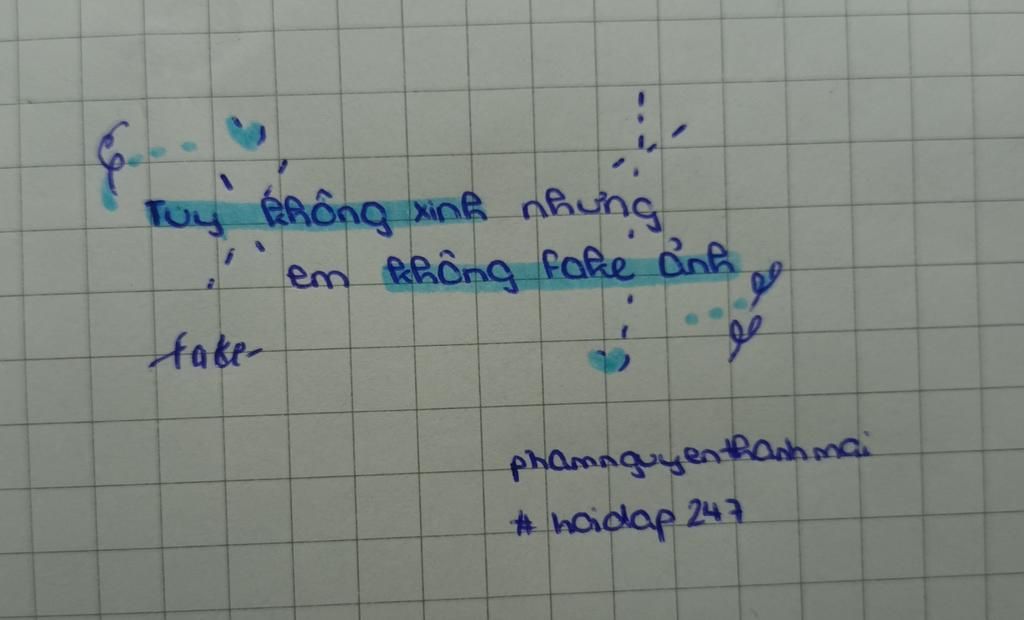 Tuy không xinh nhưng
em không fake ảnh
fake
phamnguyenthanhmai
# hoidap247